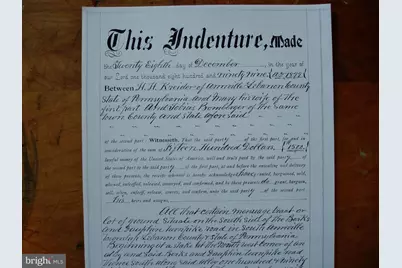 This Indenture, Made
the Twenty Eighth day of December in the year of
our Lord one thousand eight hundred and ninety nine (A.D. 1899)
Between H. H. Kreider of Annville Lebanon County
State of Pennsylvania and Mary his wife of the
first part And Tobias Bomberger of the same
Town County and State aforesaid
of the second part: Witnesseth, That the said party of the first part, for and in
consideration of the sum of Fifteen Hundred Dollars (1500)
lawful money of the United States of America, well and truly paid by the said party of the
second part to the said party of the first part, at and before the ensealing and delivery
of these presents, the receipt whereof is hereby acknowledged, have granted, bargained, sold,
aliened, enfeoffed, released, conveyed, and confirmed, and by these presents do grant, bargain,
sell, alien, enfeoff, release, convey, and confirm, unto the said party of the second part
his heirs and assigns,
All that certain messuage tract or
Lot of ground Situate on the South side of the Berks
and Dauphin turnpike road in South Annville
township Lebanon County & State of Pennsylvania
Beginning at a stake the North west corner of an
alley and said Berks and Dauphin turnpike road
thence South along said alley one hundred & ninety
bright MLS